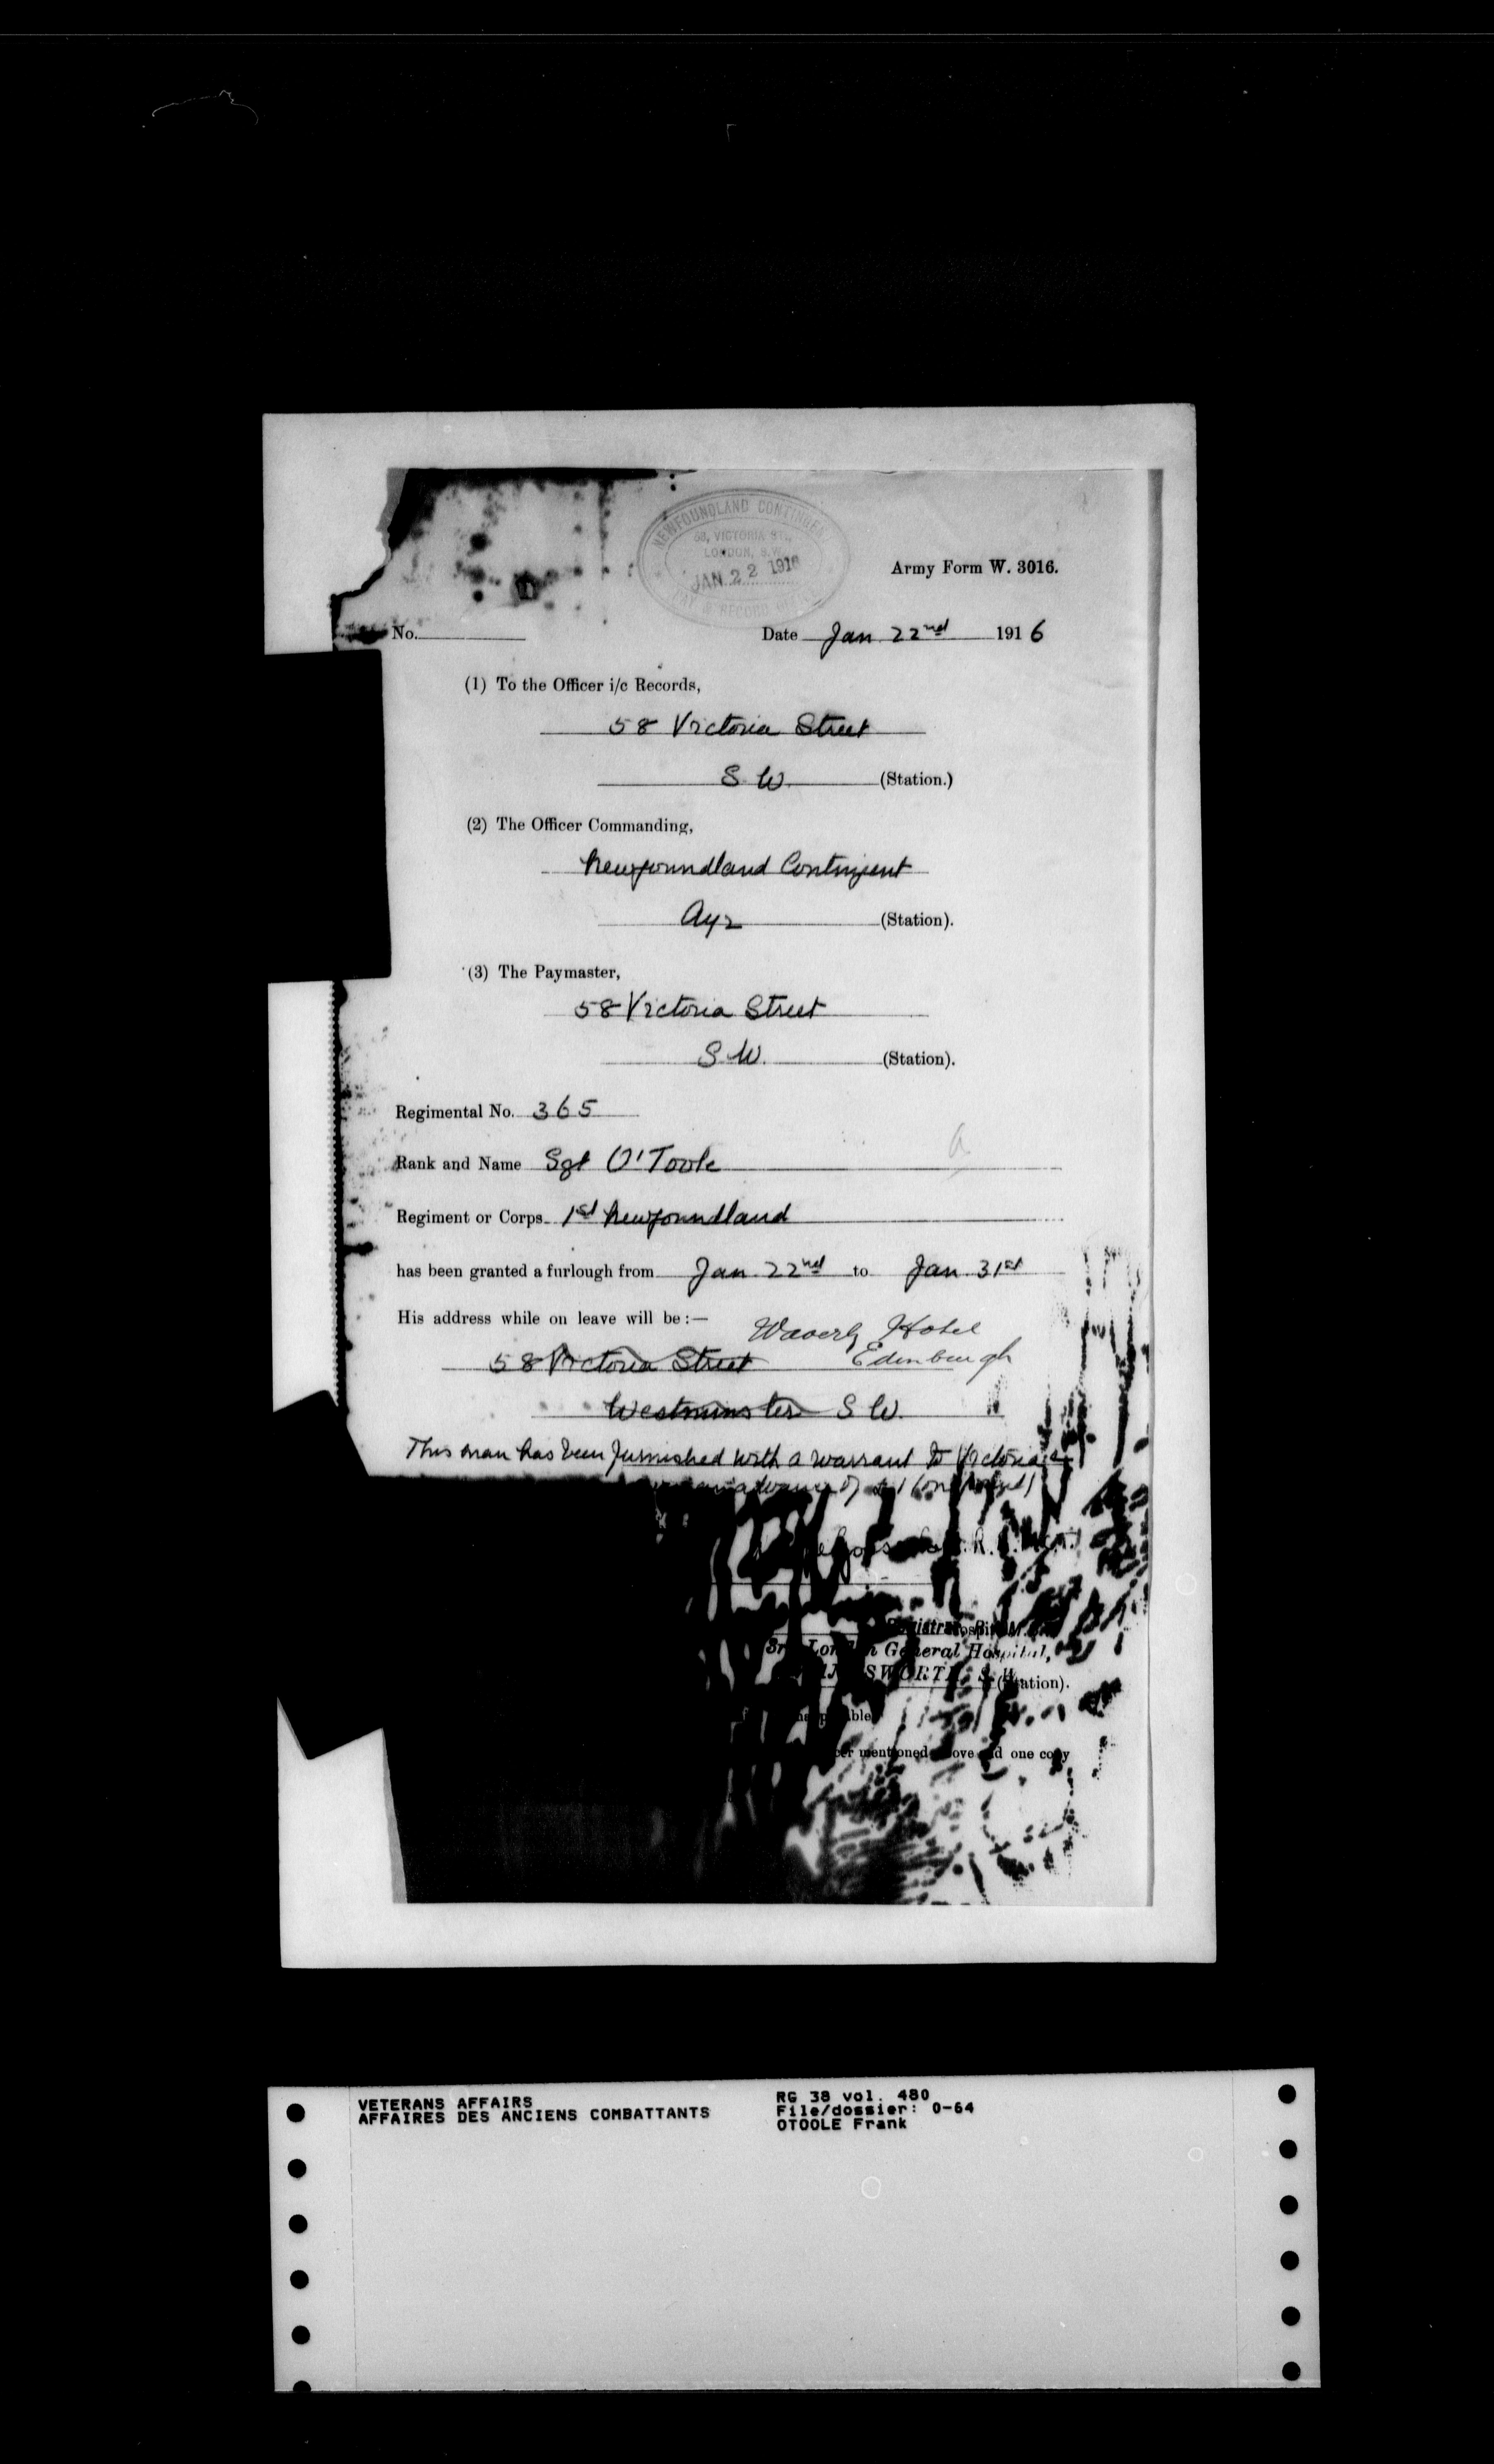 NEWFOUNDLAND CONTINGENT
58, VICTORIA ST.,
LONDON, S.W.
JAN 22 1916
PAY & RECORD OFFICE
Army Form W. 3016.
No.
Date Jan 22nd 1916
(1) To the Officer i/c Records,
58 Victoria Street
S W. (Station.)
(2) The Officer Commanding,
Newfoundland Contingent
Ayr (Station).
(3) The Paymaster,
58 Victoria Street
S W. (Station).
Regimental No. 365
Rank and Name Sgt O'Toole
Regiment or Corps 1st Newfoundland
has been granted a furlough from Jan 22nd to Jan 31st
His address while on leave will be:—
Waverly Hotel
58 Victoria Street Edinburgh
Westminster S W.
This man has been furnished with a warrant to Victoria
General Hospital,
(Station).
mentioned above and one copy
VETERANS AFFAIRS
AFFAIRES DES ANCIENS COMBATTANTS
RG 38 vol. 480
File/dossier: O-64
OTOOLE Frank